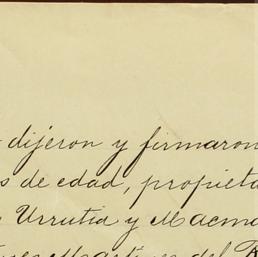 dijeron y firmaron
s de edad, propieta
Urrutia y Macma
del R